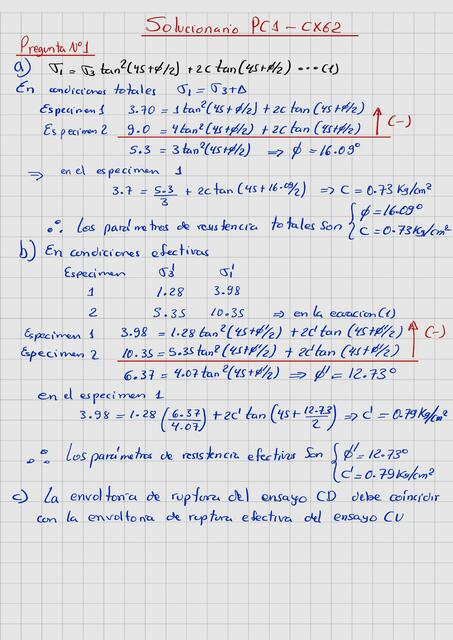 Solucionario PC1 - CX62
Pregunta N°1
a) σ1 = σ3 tan²(45+ϕ/2) + 2c tan(45+ϕ/2) ...(1)
En condiciones totales σ1 = σ3+Δ
Especimen 1 3.70 = 1 tan²(45+ϕ/2) + 2c tan(45+ϕ/2)
Especimen 2 9.0 = 4 tan²(45+ϕ/2) + 2c tan(45+ϕ/2) (-)
5.3 = 3 tan²(45+ϕ/2) ⇒ ϕ = 16.09°
⇒ en el especimen 1
3.7 = 5.3/3 + 2c tan(45+16.09/2) ⇒ C = 0.73 Kg/cm²
∴ Los parámetros de resistencia totales son { ϕ = 16.09°
C = 0.73 Kg/cm²
b) En condiciones efectivas
Especimen σ3' σ1'
1 1.28 3.98
2 5.35 10.35 ⇒ en la ecuacion (1)
Especimen 1 3.98 = 1.28 tan²(45+ϕ'/2) + 2c' tan(45+ϕ'/2)
Especimen 2 10.35 = 5.35 tan²(45+ϕ'/2) + 2c' tan(45+ϕ'/2) (-)
6.37 = 4.07 tan²(45+ϕ'/2) ⇒ ϕ' = 12.73°
en el especimen 1
3.98 = 1.28 (6.37/4.07) + 2c' tan(45+12.73/2) ⇒ C' = 0.79 Kg/cm²
∴ Los parámetros de resistencia efectivos son { ϕ' = 12.73°
C' = 0.79 Kg/cm²
c) La envoltoria de ruptura del ensayo CD debe coincidir
con la envoltoria de ruptura efectiva del ensayo CU